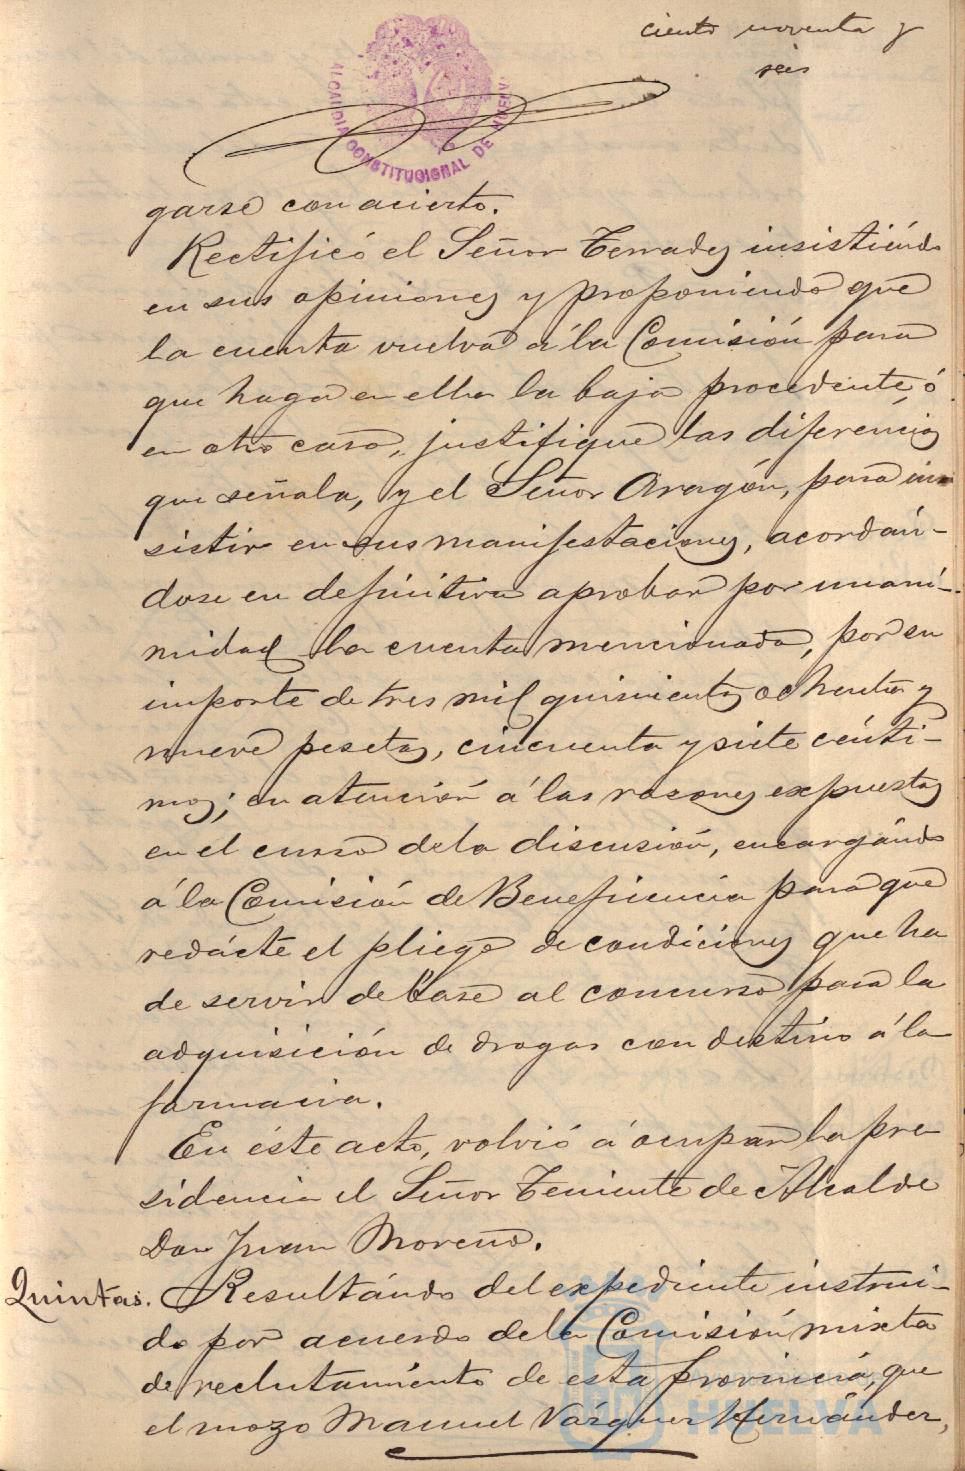 ciento noventa y
seis
ALCALDIA CONSTITUCIONAL DE HUELVA
garse con acierto.
Rectificó el Señor Terrades insistiéndo
en sus opiniones y proponiendo que
la cuenta vuelva á la Comisión para
que haga en ella la baja procedente, ó
en otro caso, justifique las diferéncias
que señala, y el Señor Aragón, para in-
sistir en sus manifestaciones, acordán-
dose en definitiva aprobar por unaní-
midad la cuenta mencionada, por su
importe de tres mil quinientas ochenta y
nueve pesetas, cincuenta y siete cénti-
mos; en atención á las razones expuestas
en el curso de la discusión, encargándo
á la Comisión de Beneficencia para que
redácte el pliego de condiciones que ha
de servir de base al concurso para la
adquisición de drogas con destino á la
farmacia.
En éste acto, volvió á ocupar la pre
sidencia el Señor Teniente de Alcalde
Don Juan Moreno.
Quintas. Resultándo del expediente instrui-
do por acuerdo de la Comisión mixta
de reclutamiento de esta provincia, que
el mozo Manuel Vázquez Hernández,
HUELVA